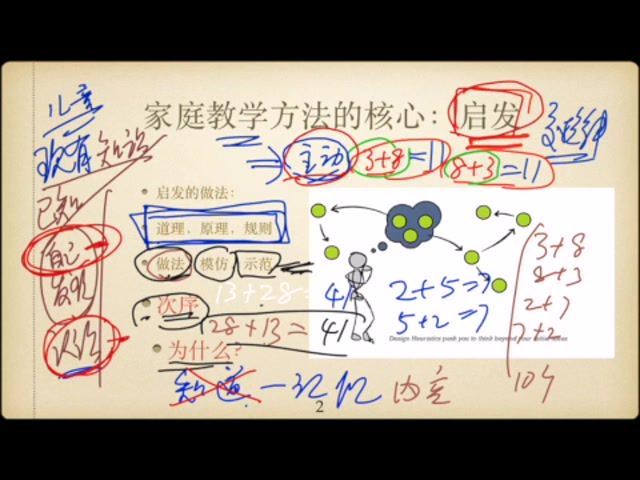 家庭教学方法的核心：启发
儿童
现有知识
已知
自己
发现
主动
3+8=11
8+3=11
启发的做法：
道理，原理，规则
做法 模仿 示范
次序
13+28=41
28+13=41
为什么？
2+5=7
5+2=7
3+8
8+3
2+7
7+2
10个
Design Heuristics push you to think beyond your initial ideas
知道-记忆 内容
2